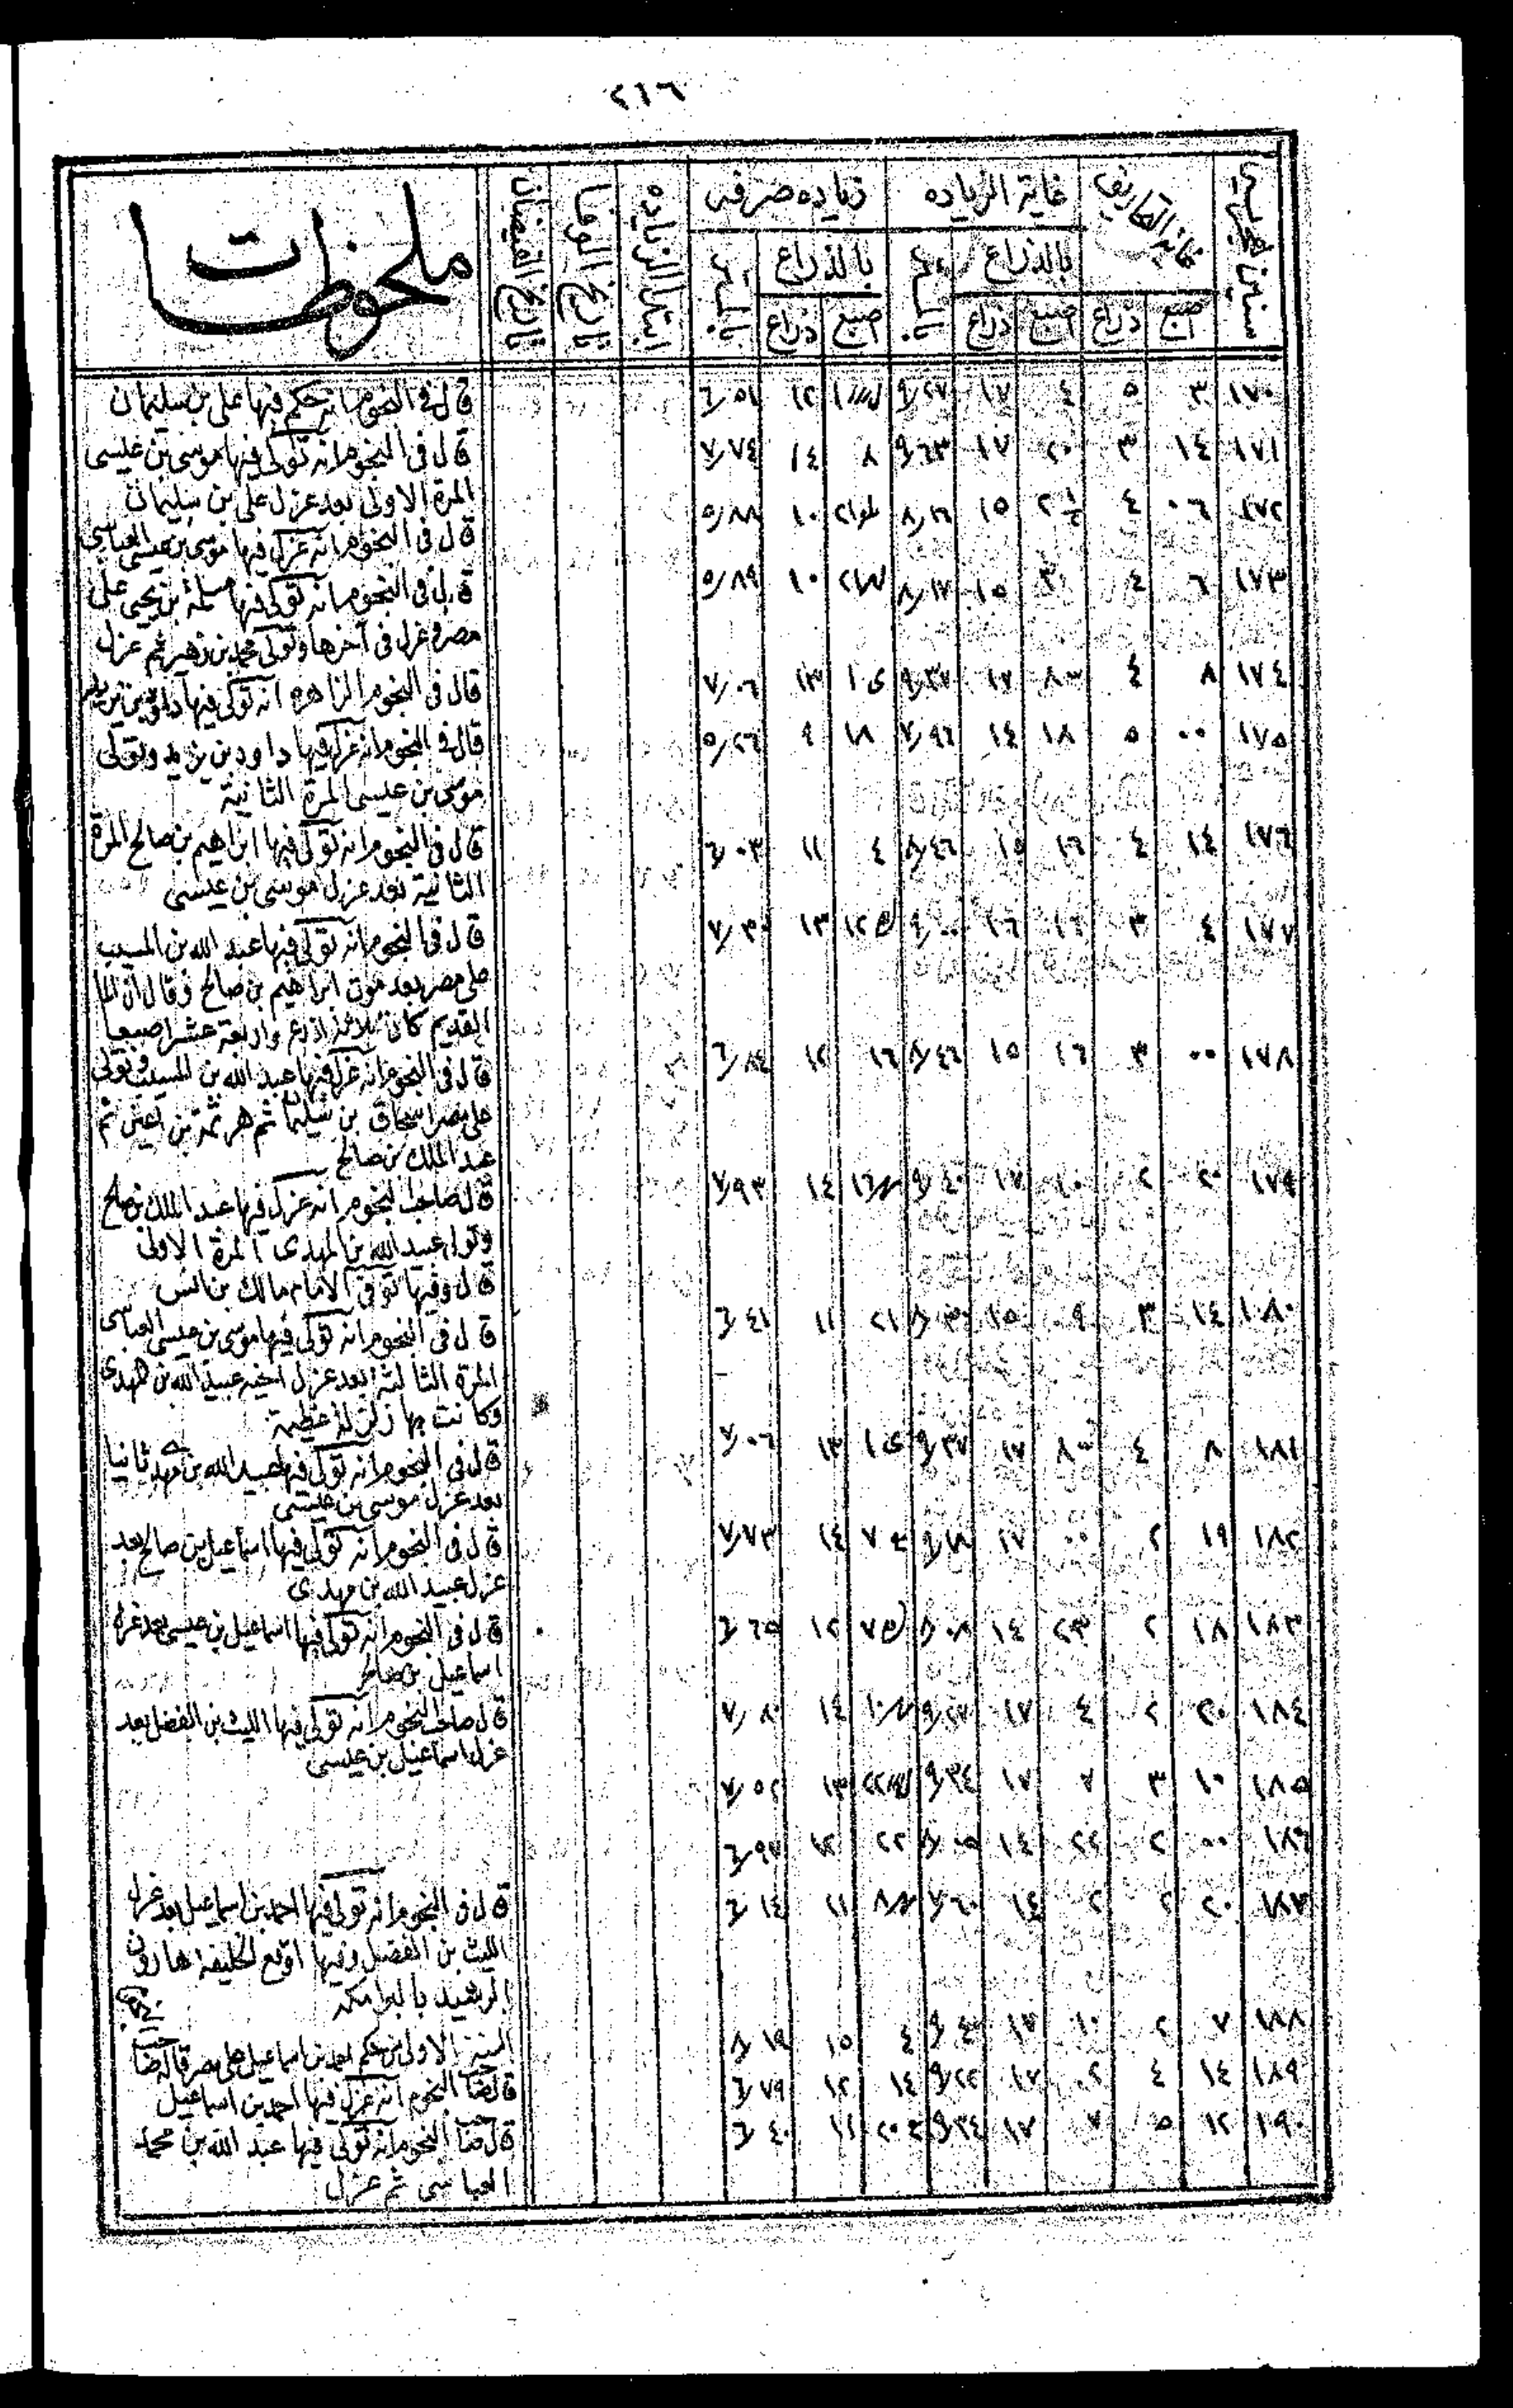 ٢١٦
سنين هجرية
غاية التحاريق
غاية الزياده
زياده صرفه
ابتدا الزياده
تاريخ الوفا
تاريخ الفيضان
ملحوظات
بالذراع
بالذراع
اصبع ذراع اصبع ذراع اصبع ذراع
١٧٠ ٣ ٥ ٤ ١٧ ٩٫٢٧ ١٢ ٦٫٥١
قال فى النجوم انه حكم فيها على بن سليمان
١٧١ ١٤ ٣ ٢٠ ١٧ ٩٫٦٣ ٨ ١٤ ٧٫٧٤
قال فى النجوم انه تولى فيها موسى بن عيسى
المرة الاولى بعد عزل على بن سليمان
١٧٢ ٠٦ ٤ ١٥ ٨٫١٦ ١٠ ٥٫٨٨
قال فى النجوم انه عزل فيها موسى بن عيسى العباسى
١٧٣ ٦ ٤ ٣ ١٥ ٨٫١٧ ١٠ ٥٫٨٩
قال فى النجوم انه تولى فيها مسلمة بن يحيى على
مصر وعزل فى آخرها وتولى محمد بن زهير ثم عزل
١٧٤ ٨ ٤ ١٧ ٩٫٣٧ ١٣ ٧٫٠٦
قال فى النجوم الزاهره انه تولى فيها داود بن يزيد
١٧٥ ٠٠ ٥ ١٨ ١٤ ٧٫٩٦ ١٨ ٩ ٥٫٢٦
قال فى النجوم انه عزل فيها داود بن يزيد وتولى
موسى بن عيسى المرة الثانية
١٧٦ ١٤ ٤ ١٦ ١٥ ٨٫٤٦ ٤ ١١ ٦٫٠٣
قال فى النجوم انه تولى فيها ابراهيم بن صالح المرة
الثانية بعد عزل موسى بن عيسى
١٧٧ ٤ ٣ ١٦ ١٦ ٩٫٠٠ ١٣ ٧٫٣٠
قال فى النجوم انه تولى فيها عبد الله بن المسيب
على مصر بعد موت ابراهيم بن صالح وقال ان الما
القديم كان ثلاثة اذرع واربعة عشر اصبعا
١٧٨ ٠٠ ٣ ١٦ ١٥ ٨٫٤٦ ١٦ ١٢ ٦٫٨٤
قال فى النجوم انه عزل فيها عبد الله بن المسيب وتولى
على مصر اسحاق بن سليمان ثم هرثمة بن اعين ثم
عبد الملك بن صالح
١٧٩ ٢٠ ٢ ١٠ ١٧ ٩٫٤٠ ١٤ ٧٫٩٣
قال صاحب النجوم انه عزل فيها عبد الملك بن صالح
وتولى عبيد الله بن المهدى المرة الاولى
قال وفيها توفى الامام مالك بن انس
١٨٠ ١٤ ٣ ٩ ١٥ ٨٫٣٠ ٢١ ١١ ٦٫٤١
قال فى النجوم انه تولى فيها موسى بن عيسى العباسى
المرة الثالثة بعد عزل اخيه عبيد الله بن المهدى
وكانت بها زلزلة عظيمة
١٨١ ٨ ٤ ١٧ ٩٫٣٧ ١٣ ٧٫٠٦
قال فى النجوم انه تولى فيها عبيد الله بن مهدى ثانيا
بعد عزل موسى بن عيسى
١٨٢ ١٩ ٢ ٠٠ ١٧ ٩٫١٨ ١٤ ٧٫٧٣
قال فى النجوم انه تولى فيها اسماعيل بن صالح بعد
عزل عبيد الله بن مهدى
١٨٣ ١٨ ٢ ٢٣ ١٤ ٨٫٠٨ ١٢ ٦٫٦٥
قال فى النجوم انه تولى فيها اسماعيل بن عيسى بعد عزل
اسماعيل بن صالح
١٨٤ ٢٠ ٢ ٤ ١٧ ٩٫٢٧ ١٤ ٧٫٨٠
قال صاحب النجوم انه تولى فيها الليث بن الفضل بعد
عزل اسماعيل بن عيسى
١٨٥ ١٠ ٣ ٧ ١٧ ٩٫٣٤ ١٣ ٧٫٥٢
١٨٦ ٠٠ ٢ ٢٢ ١٤ ٨٫٠٥ ٢٢ ١٢ ٦٫٩٧
١٨٧ ٢٠ ٢ ٢ ١٤ ٧٫٦٠ ١١ ٦٫١٤
قال فى النجوم انه تولى فيها احمد بن اسماعيل بعد عزل
الليث بن الفضل وفيها اوقع الخليفة هارون
الرشيد بالبرامكه
١٨٨ ٧ ٢ ١٠ ١٧ ٩٫٤٠ ٤ ١٥ ٨٫١٩
السنة الاولى من حكم احمد بن اسماعيل على مصر قاله صاحب النجوم
١٨٩ ١٤ ٤ ٢ ١٧ ٩٫٢٢ ١٤ ١٢ ٦٫٧٩
قال صاحب النجوم انه عزل فيها احمد بن اسماعيل
١٩٠ ١٢ ٥ ٧ ١٧ ٩٫٣٤ ١١ ٦٫٤٠
قال صاحب النجوم انه تولى فيها عبد الله بن محمد
العباسى ثم عزل